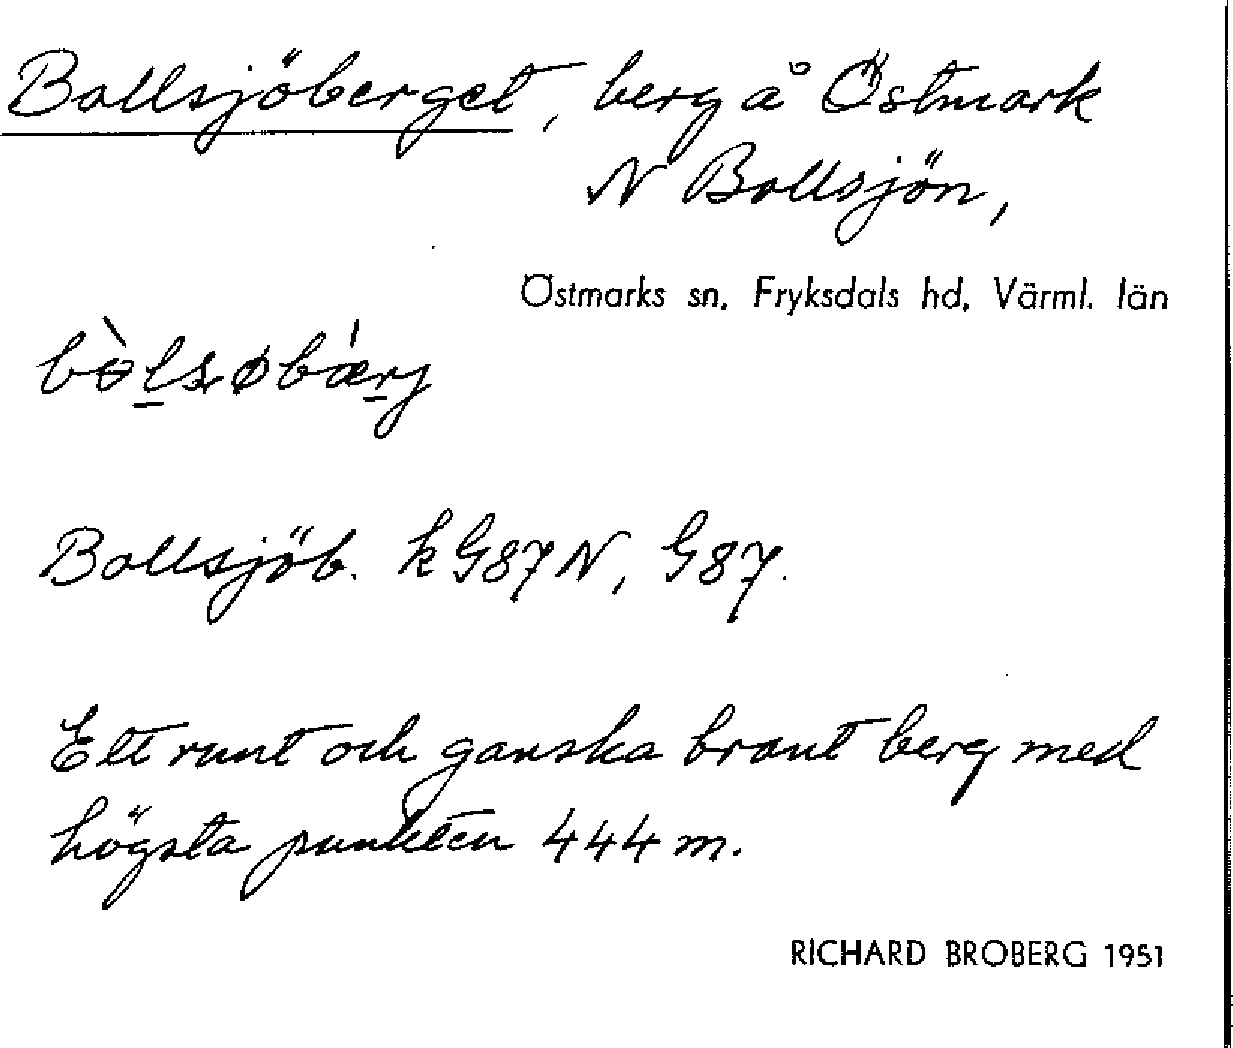 Bollsjöberget, berg å Östmark
N Bollsjön,
Östmarks sn, Fryksdals hd, Värml. län
Bollsjöb. k G87N, G87.
Ett runt och ganska brant berg med
högsta punkten 444 m.
RICHARD BROBERG 1951